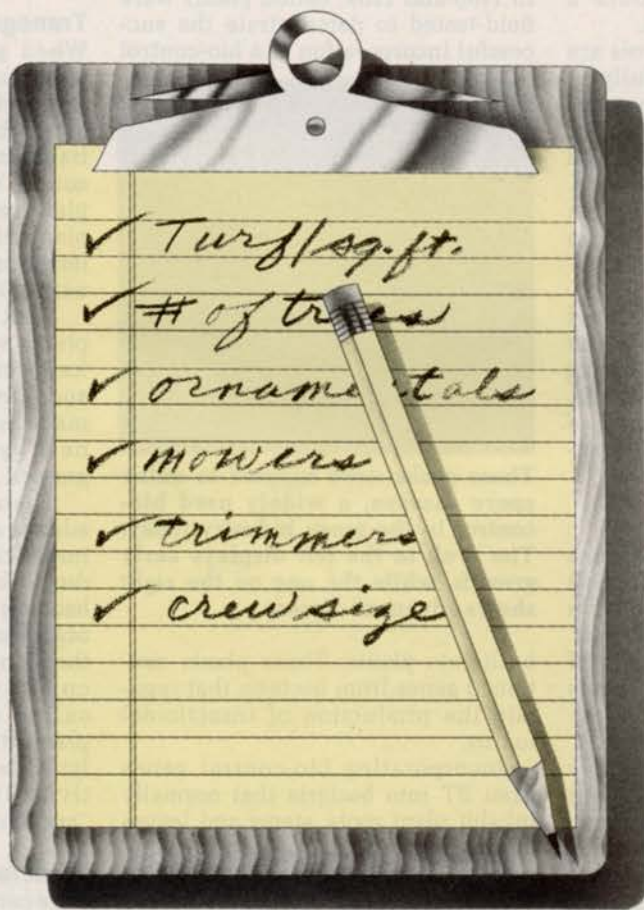 ✓ Turf/sq.ft.
✓ # of trees
✓ ornamentals
✓ mowers
✓ trimmers
✓ crew size